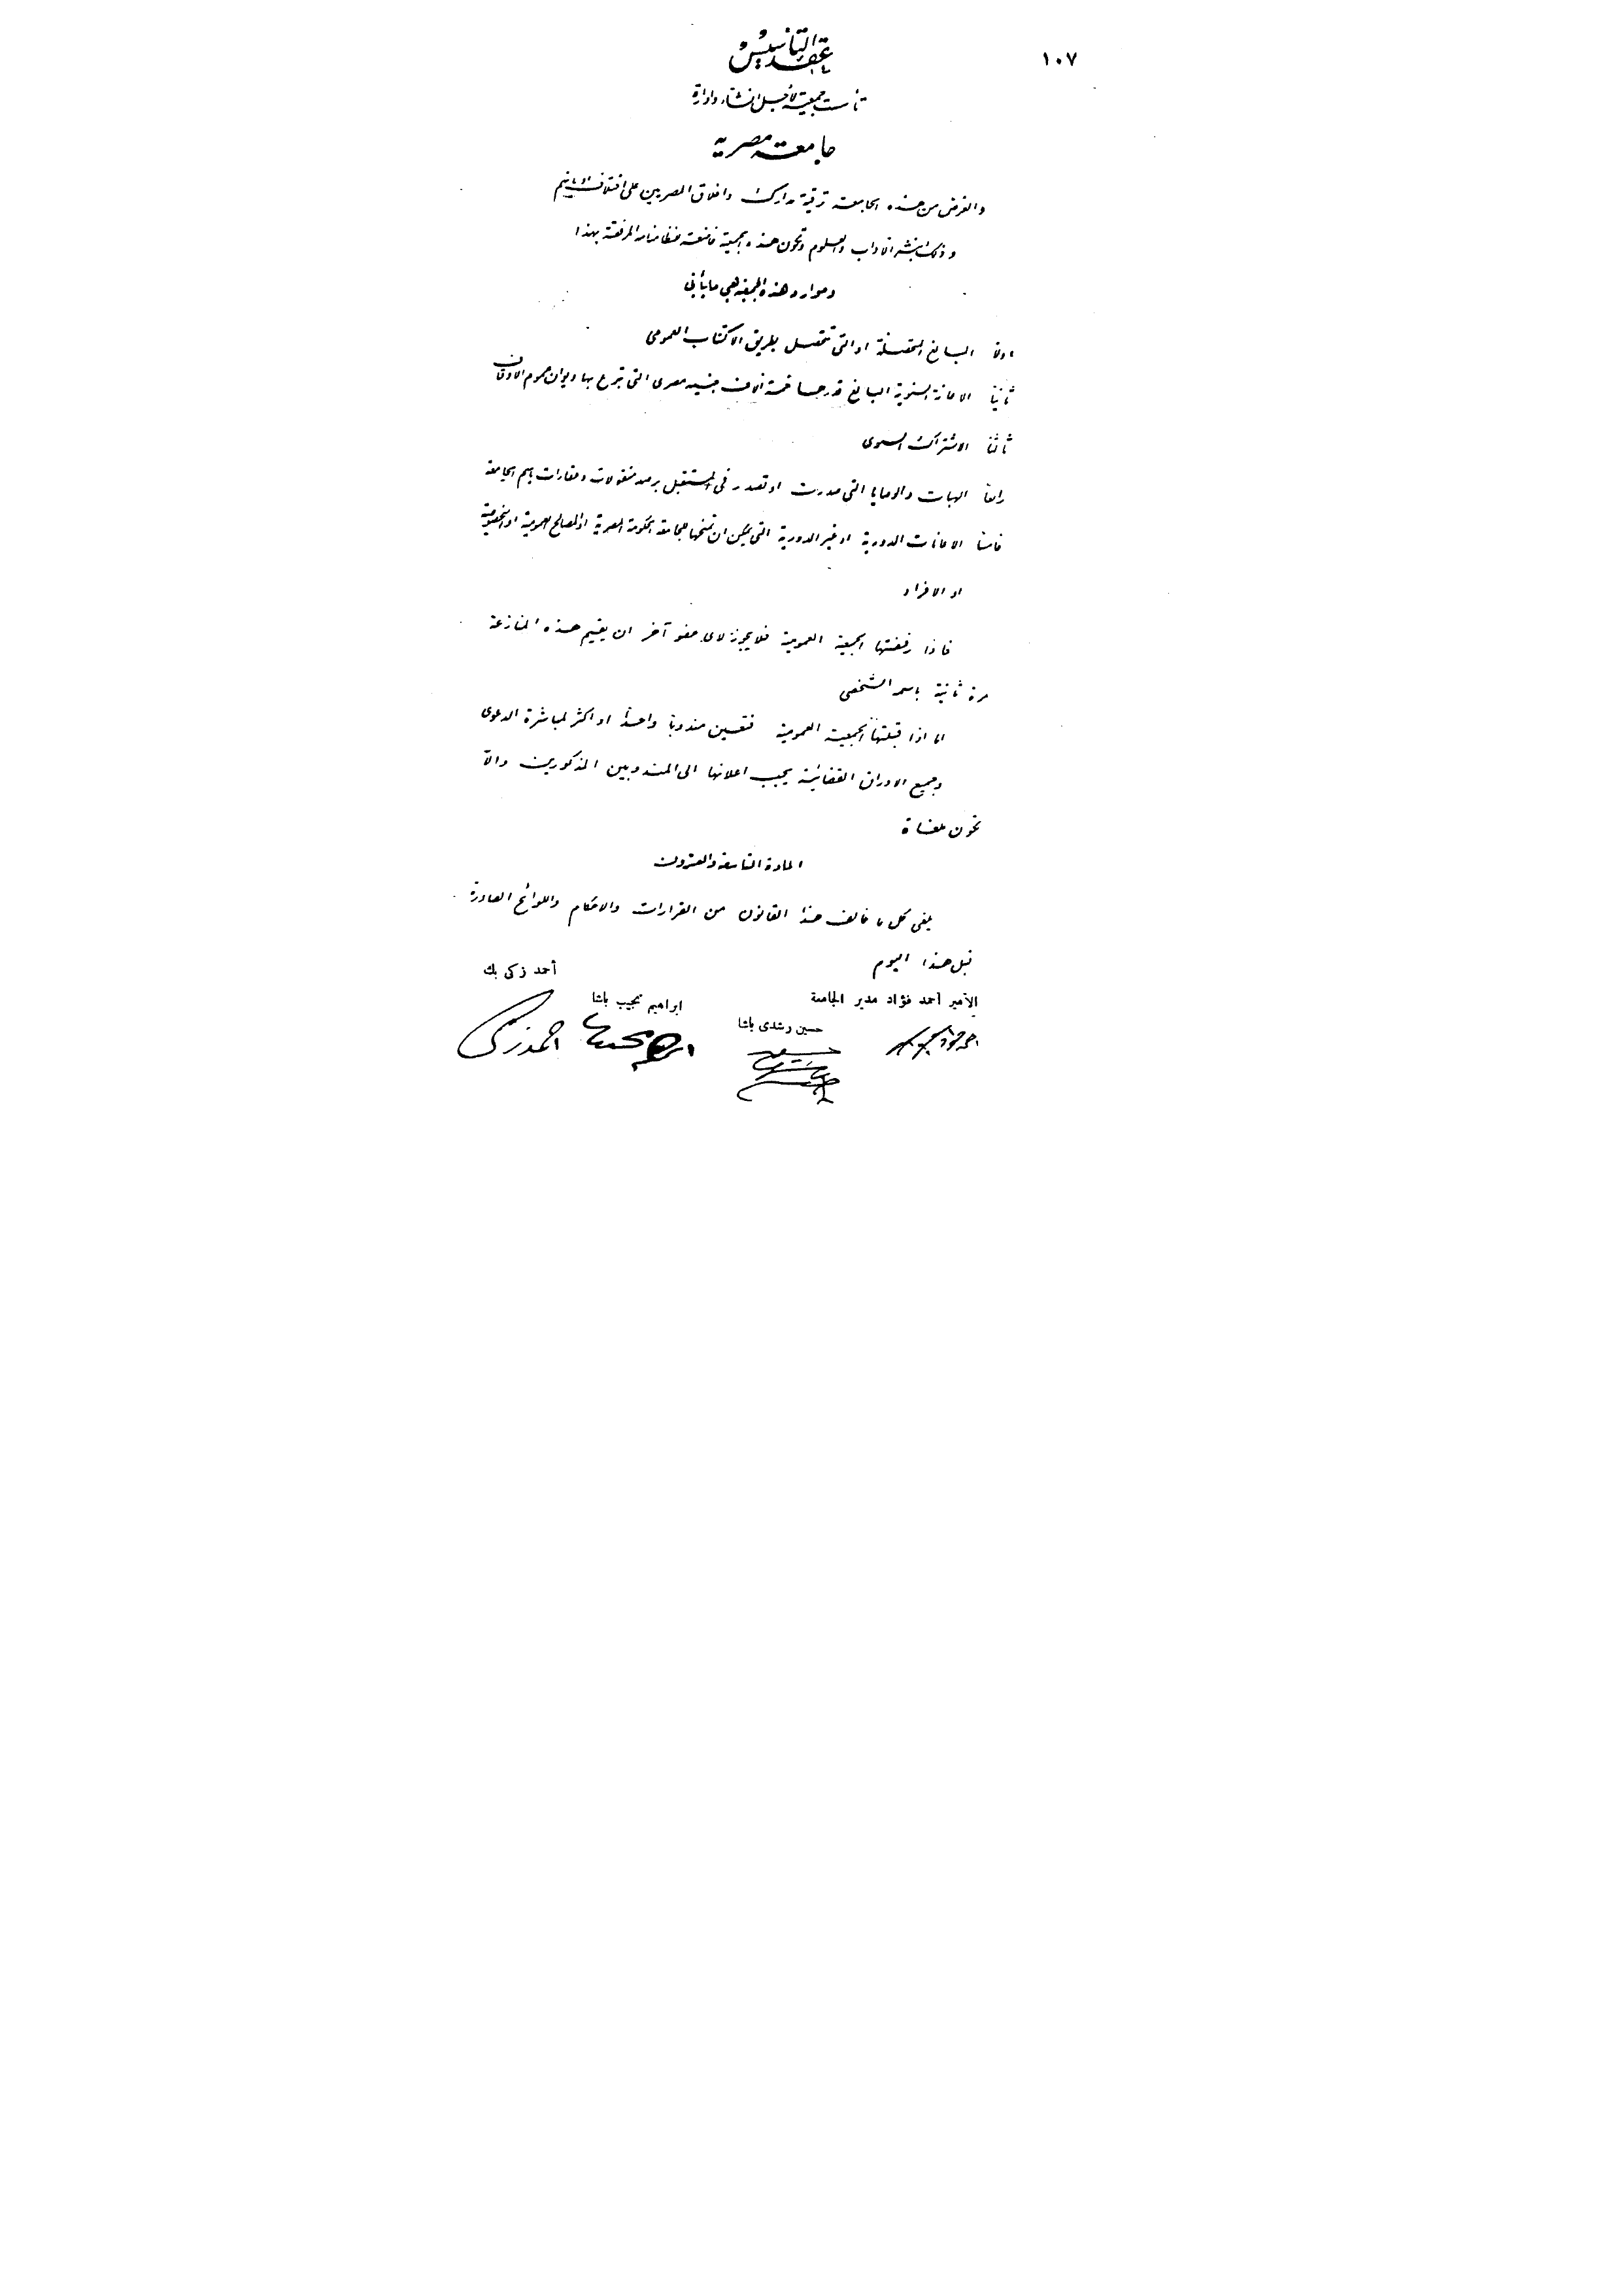 ١٠٧
عقد التأسيس
تأسست جمعية لأجل انشاء وادارة
جامعة مصرية
والغرض من هذه الجامعة ترقية مدارك واخلاق المصريين على اختلاف اديانهم
وذلك بنشر الآداب والعلوم وتكون هذه الجمعية خاضعة لنظامنامه المرفقة بهذا
وموارد هذه الجمعية هي ما يأتى
اولا المبالغ المتحصلة او التى تتحصل بطريق الاكتتاب العمومى
ثانيا الاعانة السنوية البالغ قدرها خمسة آلاف جنيه مصرى التى تبرع بها ديوان عموم الاوقاف
ثالثا الاشتراك السنوى
رابعا الهبات والوصايا التى صدرت او تصدر فى المستقبل برصد منقولات وعقارات باسم الجامعة
خامسا الاعانات الدورية او غير الدورية التى يمكن ان تمنحها للجامعة الحكومة المصرية او المصالح العمومية او الخصوصية
او الافراد
فاذا رفضتها الجمعية العمومية فلا يجوز لاى عضو آخر ان يقيم هذه المنازعة
مرة ثانية باسمه الشخصى
اما اذا قبلتها الجمعية العمومية فتعين مندوبا واحدا او اكثر لمباشرة الدعوى
وجميع الاوراق القضائية يجب اعلانها الى المندوبين المذكورين والا
تكون ملغاة
المادة التاسعة والعشرون
يلغى كل ما خالف هذا القانون من القرارات والاحكام واللوائح الصادرة
قبل هذا اليوم
الأمير أحمد فؤاد مدير الجامعة
حسين رشدى باشا
ابراهيم نجيب باشا
أحمد زكى بك
احمد زكى